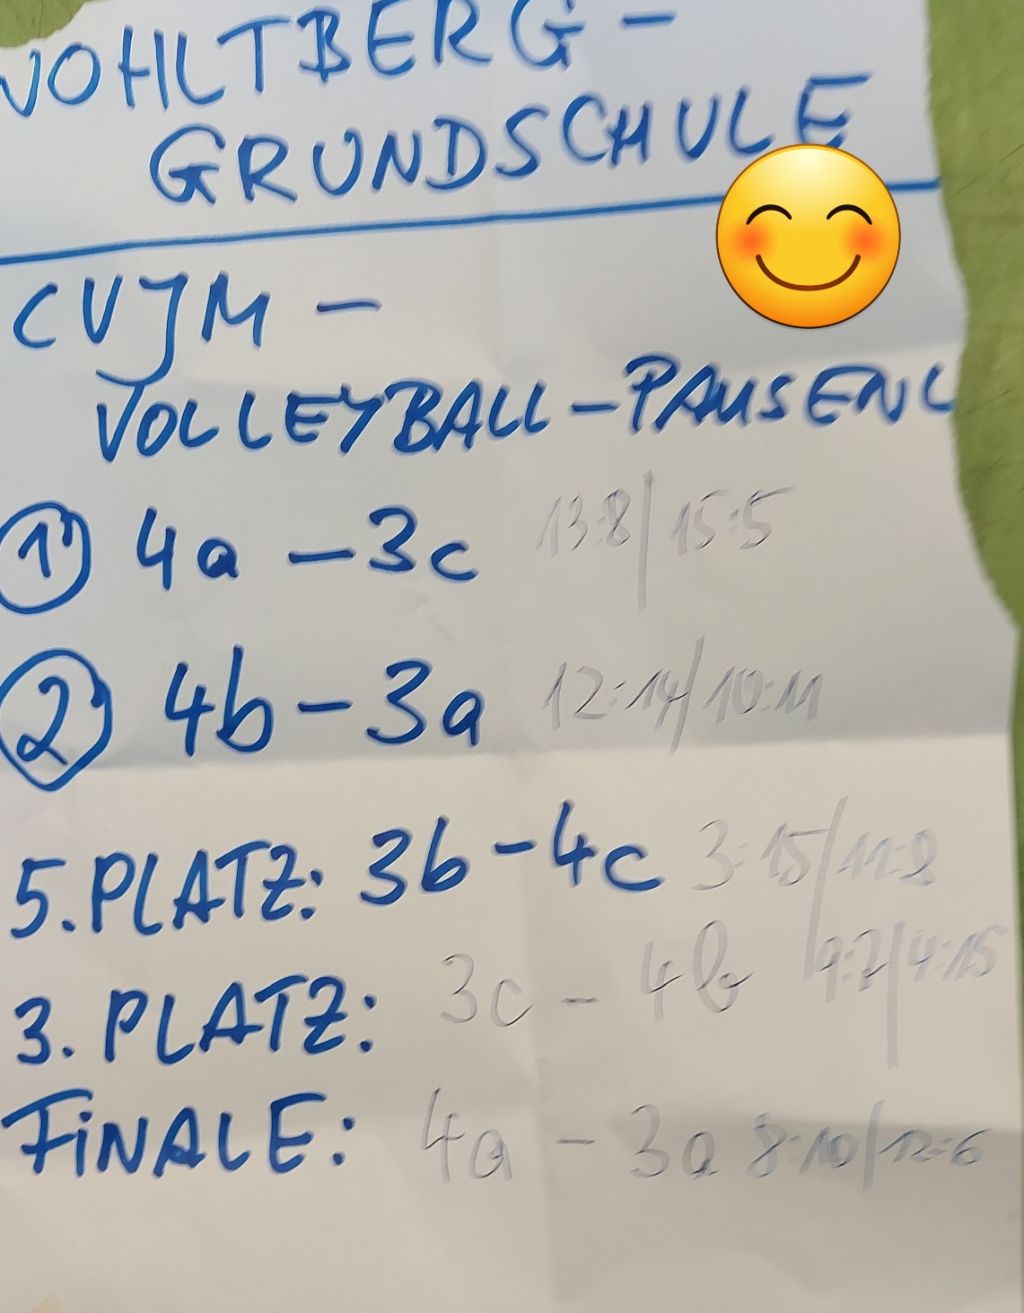 WOHLTBERG-
GRUNDSCHULE
CVJM -
VOLLEYBALL-PAUSENL
① 4a - 3c 13:8 / 15:5
② 4b - 3a 12:14 / 10:11
5. PLATZ: 3b - 4c 3:15 / 11:8
3. PLATZ: 3c - 4b 9:7 / 4:15
FiNALE: 4a - 3a 8:10 / 12:6